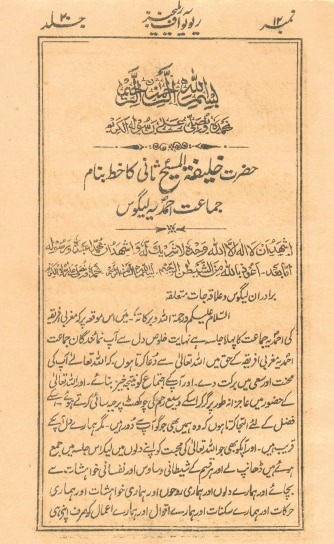 نمبر ۱۲ ریویو آف ریلیجنز جلد ۲۰
بسم اللہ الرحمن الرحیم
نحمدہ ونصلی علیٰ رسولہ الکریم
حضرت خلیفۃ المسیح ثانی کا خط بنام
جماعت احمدیہ لیگوس
اشھد ان لا الہ الا اللہ وحدہ لا شریک لہ و اشھد ان محمدا عبدہ ورسولہ
اما بعد۔ اعوذ باللہ من الشیطٰن الرجیم۔ بسم اللہ الرحمن الرحیم
برادران لیگوس و علاقجات متعلقہ
السلام علیکم ورحمۃ اللہ وبرکاتہ۔ میں اس موقعہ پر کہ مغربی افریقہ
کی احمدیہ جماعت کا پہلا جلسہ ہے نہایت خلوص دل سے آپ نمائندگان جماعت
احمدیہ مغربی افریقہ کے حق میں اللہ تعالیٰ سے دعا کرتا ہوں کہ اللہ تعالےٰ آپ کی
محنت اور سعی میں برکت دے۔ اور آپکے اجتماع کو نتیجہ خیز بنائے۔ اور اللہ تعالیٰ
کے حضور میں عاجزانہ طور پر گر کر اسکے وسیع رحم کی چوکھٹ پر
فضل کے لئے التجا کرتا ہوں کہ وہ ہمیں بھی جو گو آپسے دور ہیں۔ مگر ہمارے دل آپسے
قریب ہیں۔ اور آپکو بھی جو اللہ تعالیٰ کی محبت کو اپنے دلوں میں لیکر اس جلسہ میں جمع
ہوئے ہیں ڈھانپ لے۔ اور ہر قسم کے شیطانی وساوس اور نفسانی خواہشات سے
بچائے۔ اور ہمارے دلوں اور ہماری روحوں اور ہماری خواہشات اور ہماری
حرکات اور ہمارے سکنات اور ہمارے اقوال اور ہمارے اعمال کو صرف اپنی ہی